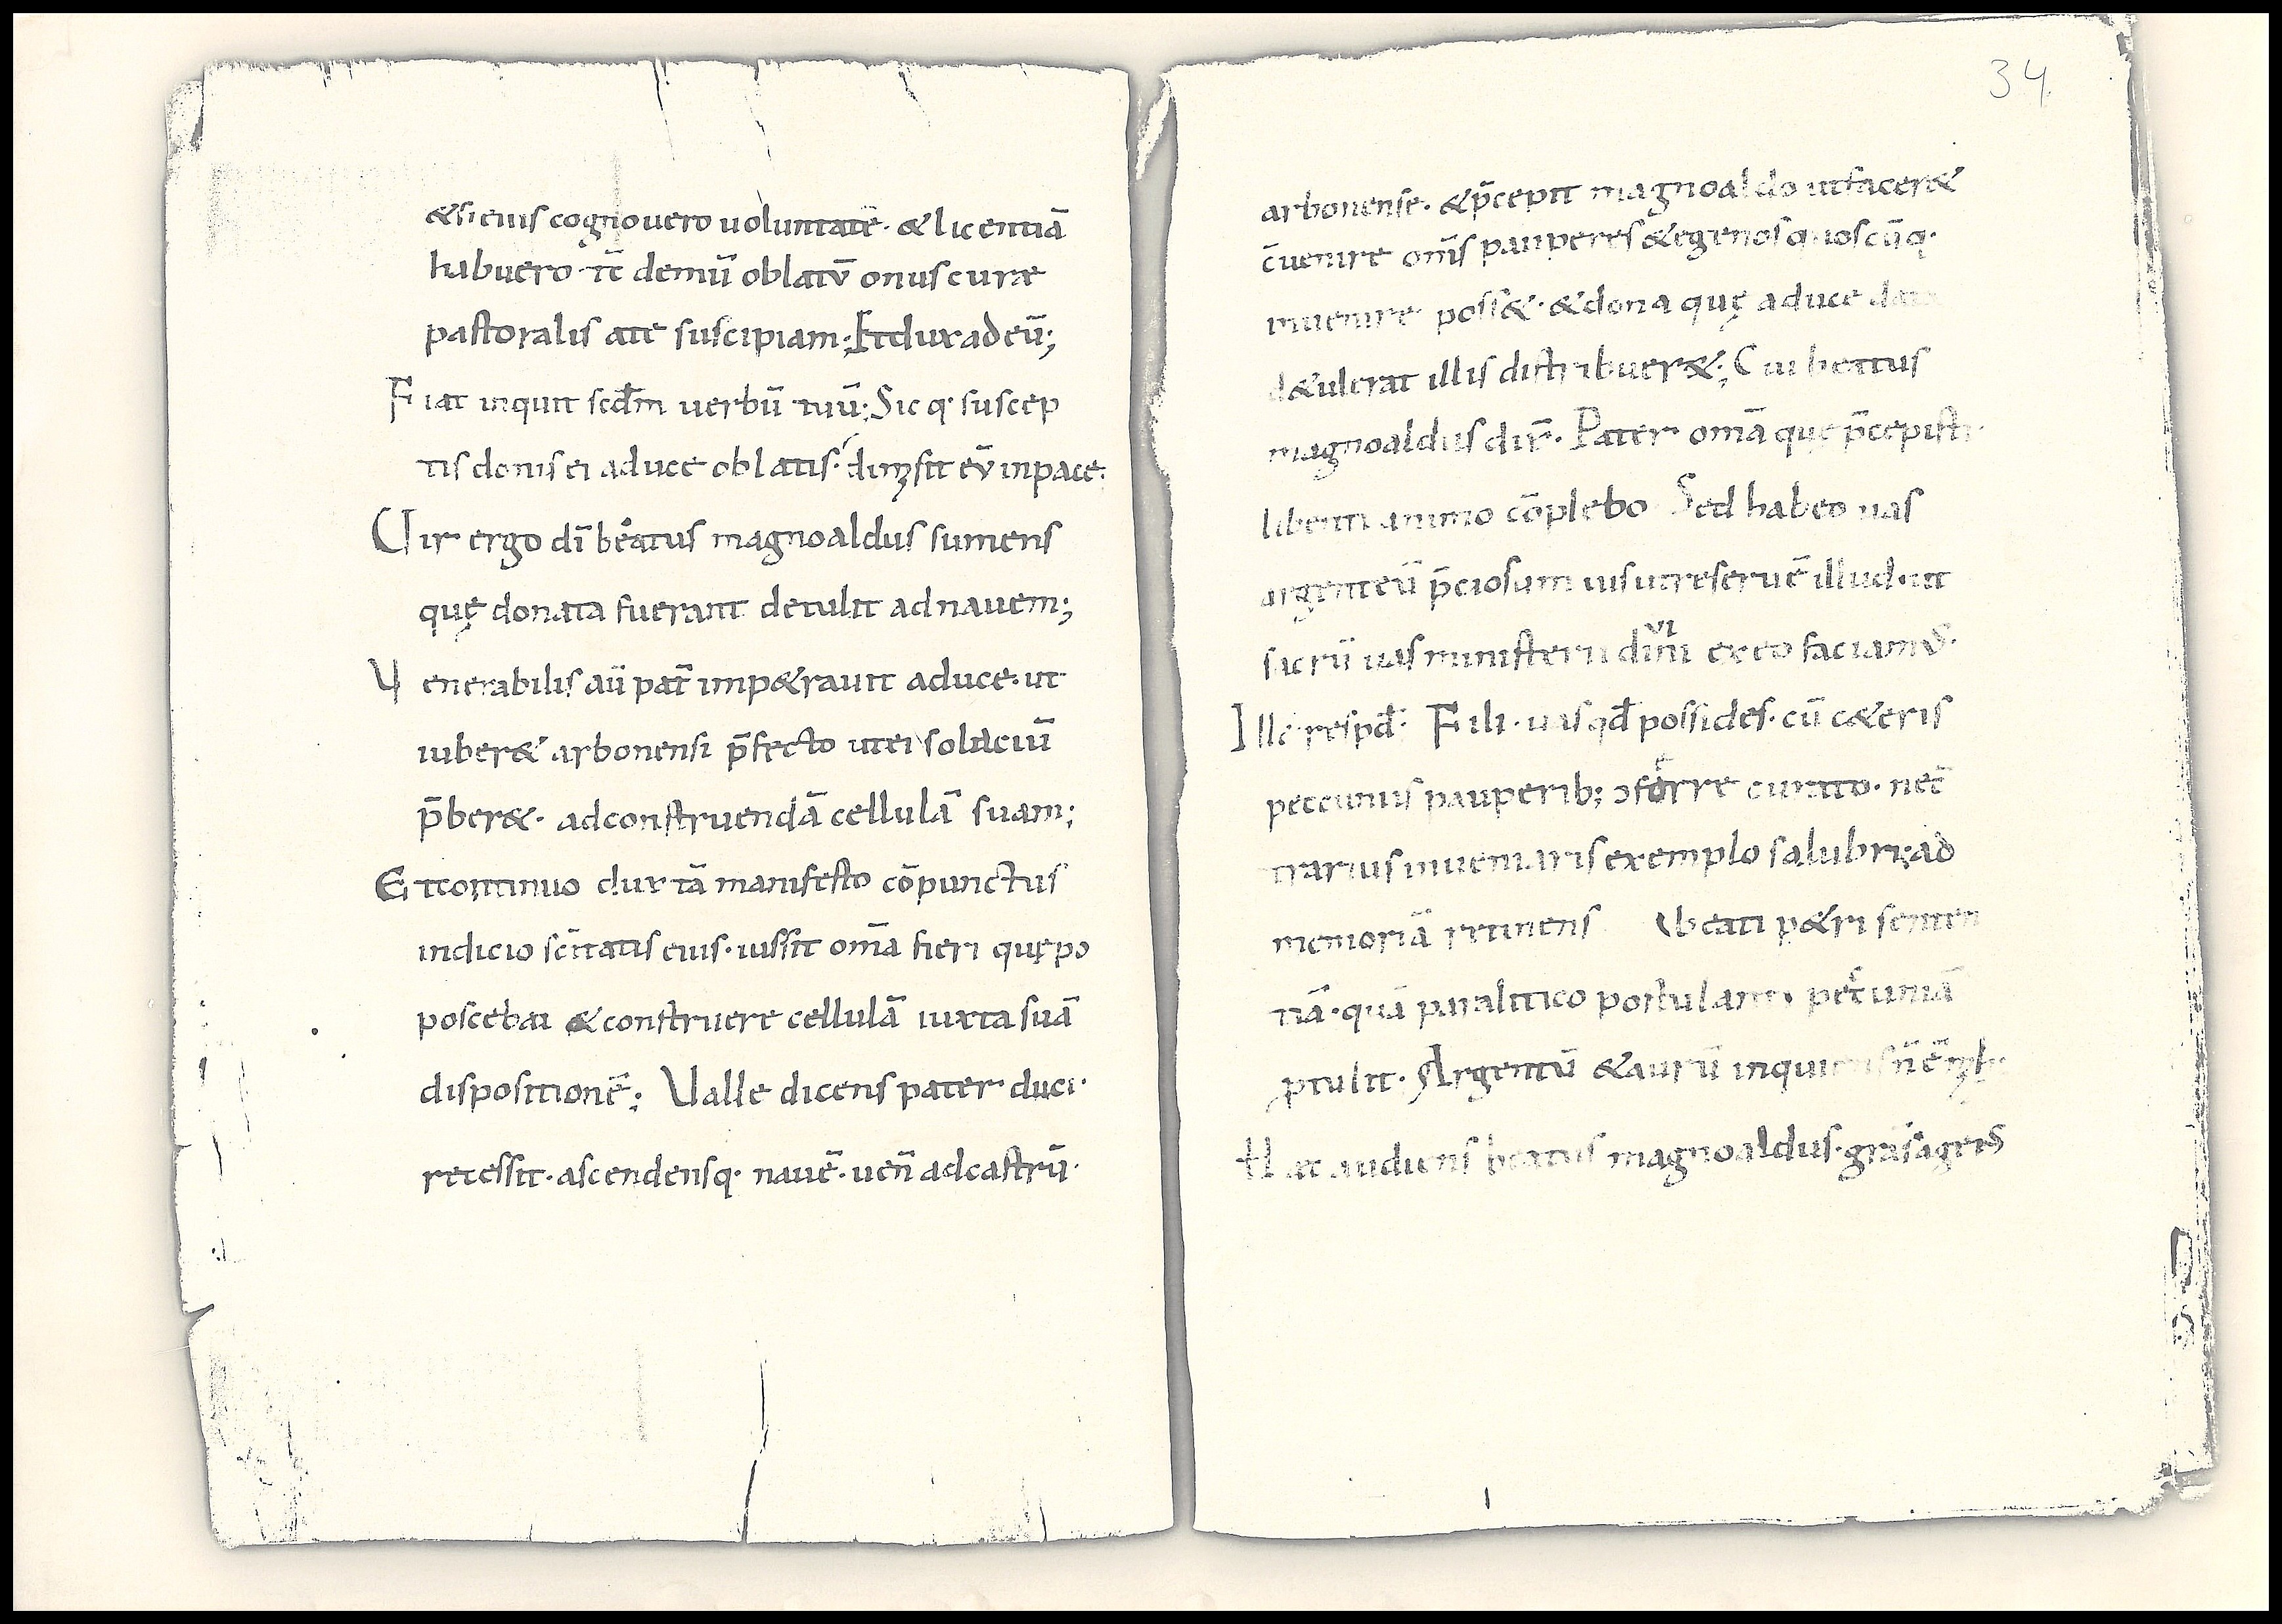 & si eius cognouero uoluntatē· & licentiā
habuero· tc̄ demū oblatū onus curae
pastoralis a te suscipiam; Et dux ad eū;
Fiat inquit scđm uerbū tuū; Sicq· suscep
tis donis ei a duce oblatis· dimisit eū in pace·
Uir ergo dī beatus magnoaldus sumens
quę donata fuerant detulit ad nauem;
Uenerabilis aū pat̄ imp&rauit a duce· ut
iuber& arbonensi p̄fecto ut ei solaciū
p̄ber&· ad construendā cellulā suam;
Et continuo dux tā manifesto cōpunctus
indicio sc̄itatis eius· iussit om̄a fieri quę po
poscebat & construere cellulā iuxta suā
dispositionē; Ualle dicens pater duci·
recessit· ascendensq· nauē· uen̄ ad castrū·
34
arbonense· & p̄cepit magnoaldo ut facer&
c̄uenire om̄s pauperes & egenos quoscūq·
inuenire poss&· & dona quę a duce data
d&ulerat illis distribuer&; Cui beatus
magnoaldus dix̄· Pater om̄a quę p̄cepisti
libenti animo cōplebo Sed habeo uas
argenteū p̄ciosum uis ut reseruē illud· ut
sacrū uas ministerii diuini ex eo faciam&·
Ille respđ· Fili· uas qđ possides· cū c&eris
peccuniis pauperib; ɔferre curato· nec̄
trarius inueniaris exemplo salubri; ad
memoriā retinens beati p&ri senten
tiā· quā paralitico postulanti pecuniā
ptulit· Argentū & aurū inquiens n̄ ē m̄h·
Haec audiens beatus magnoaldus· grās agens